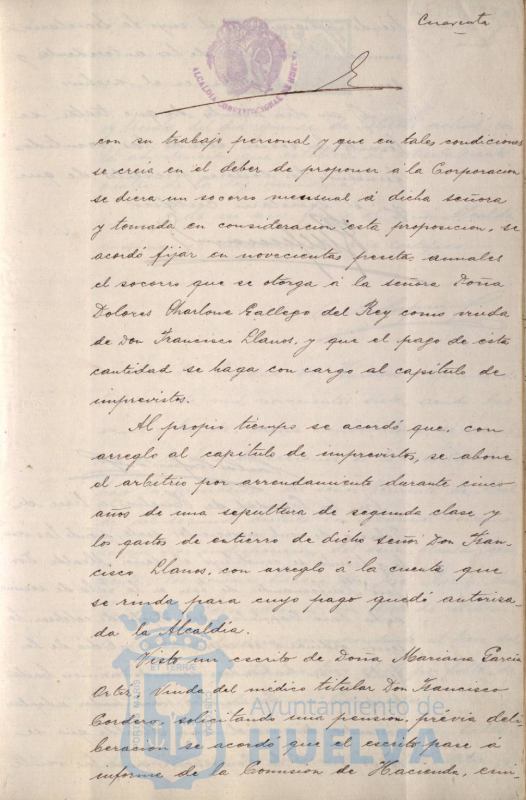 Cuarenta
ALCALDIA CONSTITUCIONAL DE HUELVA
con su trabajo personal y que en tales condiciones
se creia en el deber de proponer á la Corporacion
se diera un socorro mensual á dicha señora
y tomada en consideracion esta proposicion, se
acordó fijar en novecientas pesetas anuales
el socorro que se otorga á la señora Doña
Dolores Charlone Gallego del Rey como viuda
de Don Francisco Llanos, y que el pago de esta
cantidad se haga con cargo al capitulo de
imprevistos.
Al propio tiempo se acordó que, con
arreglo al capitulo de imprevistos, se abone
el arbitrio por arrendamiento durante cinco
años de una sepultura de segunda clase y
los gastos de entierro de dicho señor Don Fran-
cisco Llanos, con arreglo á la cuenta que
se rinda para cuyo pago quedó autoriza-
da la Alcaldía.
Visto un escrito de Doña Mariana Garcia
Ortiz, Viuda del médico titular Don Francisco
Cordero, solicitando una pension, prévia deli-
beracion se acordó que el escrito pase á
informe de la Comision de Hacienda, emi-
Ayuntamiento de
HUELVA